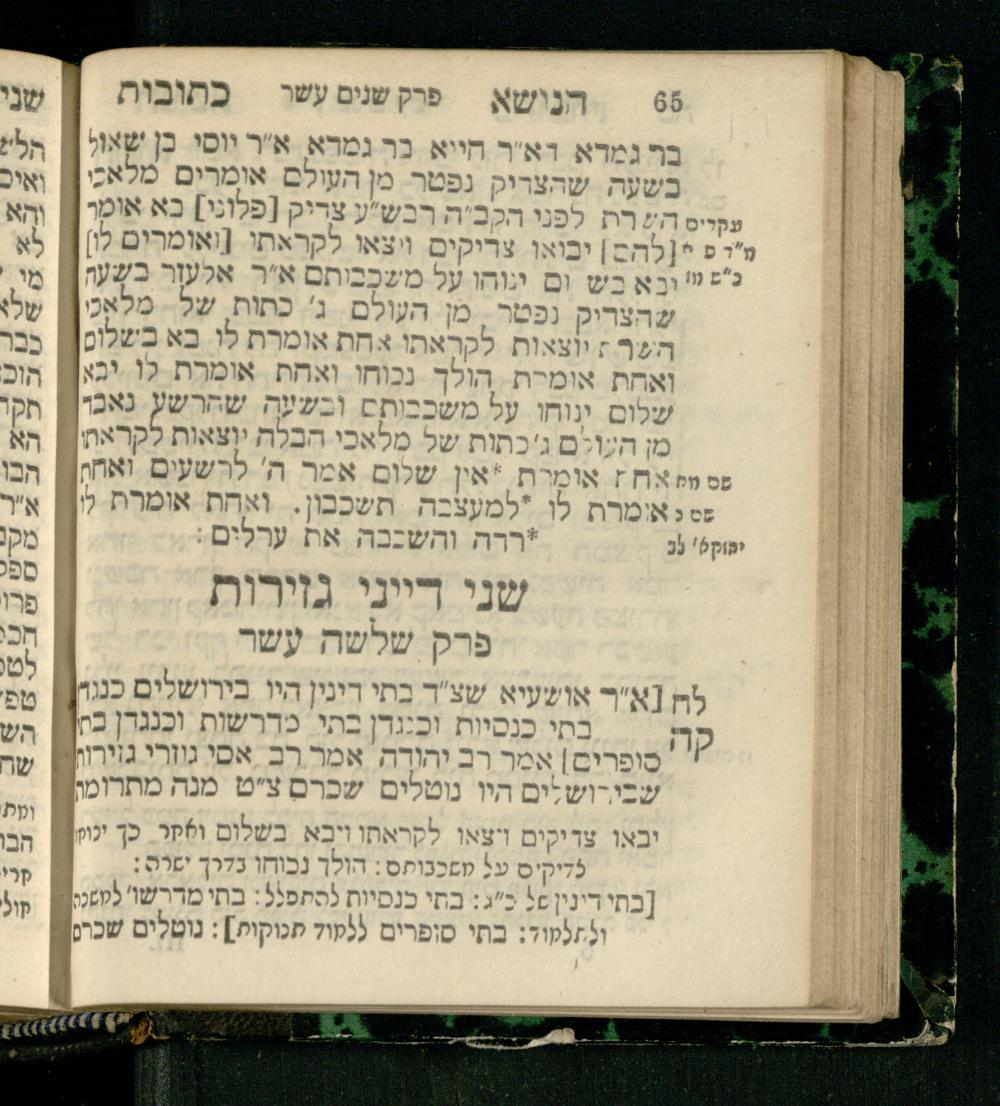 65 הנושא פרק שנים עשר כתובות
בר גמדא דא״ר חייא בר גמדא א״ר יוסי בן שאול
בשעה שהצדיק נפטר מן העולם אומרים מלאכי
השרת לפני הקב״ה רבש״ע צדיק [פלוני] בא אומר
[להם] יבואו צדיקים ויצאו לקראתו [ואומרים לו]
יבא בש ום ינוחו על משכבותם א״ר אלעזר בשעה
שהצדיק נפטר מן העולם ג׳ כתות של מלאכי
השרת יוצאות לקראתו אחת אומרת לו בא בשלום
ואחת אומרת הולך נכוחו ואחת אומרת לו יבא
שלום ינוחו על משכבותם ובשעה שהרשע נאבד
מן העולם ג׳כתות של מלאכי חבלה יוצאות לקראתו
שם מח אחת אומרת *אין שלום אמר ה׳ לרשעים ואחת
שם נ אומרת לו *למעצבה תשכבון. ואחת אומרת לו
יחזקא׳ לב *רדה והשכבה את ערלים :
שני דייני גזירות
פרק שלשה עשר
לח [א״ר אושעיא שצ״ד בתי דינין היו בירושלים כנגדן
קה בתי כנסיות וכנגדן בתי מדרשות וכנגדן בתי
סופרים] אמר רב יהודה אמר רב אסי גוזרי גזירות
שבירושלים היו נוטלים שכרם צ״ט מנה מתרומת
יבאו צדיקים ויצאו לקראתו ויבא בשלום ואחר כך ינוחו
צדיקים על משכבותם : הולך נכוחו בדרך ישרה :
[בתי דינין של כ״ג : בתי כנסיות להתפלל : בתי מדרשו׳ למשנה
ולתלמוד : בתי סופרים ללמוד תנוקות] : נוטלים שכרם